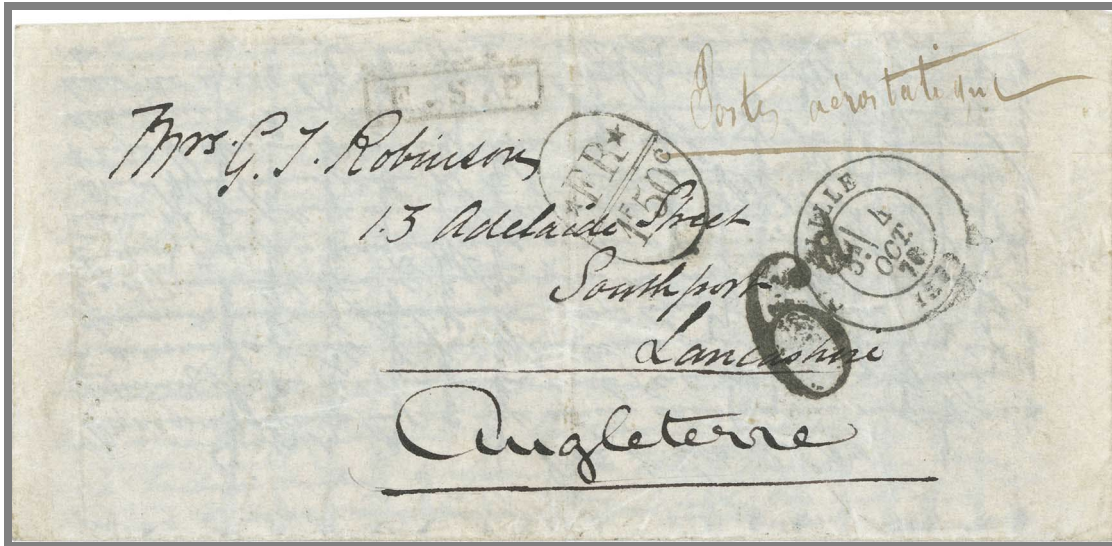 Postes aérostatique
F. S. P.
Mrs. G. T. Robinson
★FR★
1F50c
13 Adelaide Street
Southport
Lancashire
Angleterre
4
OCT.
70
6